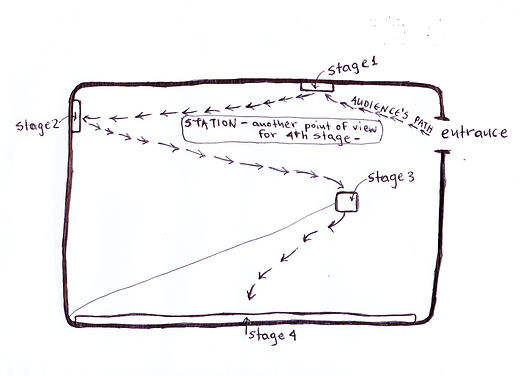 stage1
AUDIENCE'S PATH
entrance
stage2
STATION - another point of view
for 4th stage -
stage3
stage4